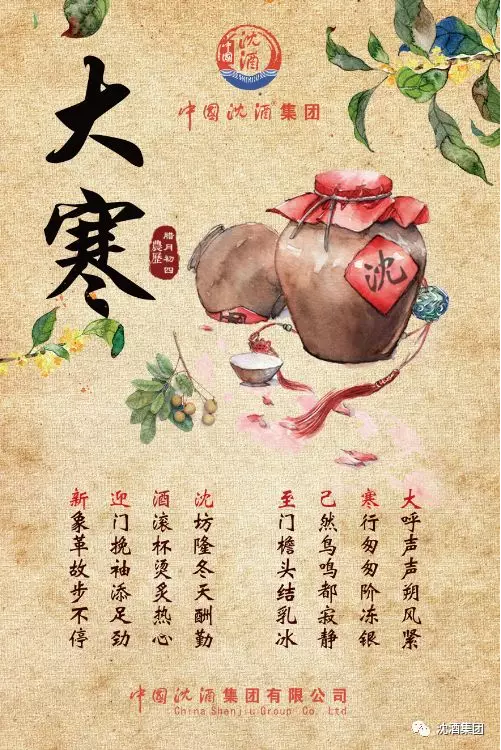 中国
沈酒
SHENJIU
中国沈酒集团
大寒
腊月初四
農歷
沈
大呼声声朔风紧
寒行匆匆阶冻银
已然鸟鸣都寂静
至门檐头结乳冰
沈坊隆冬天酬勤
酒滚杯烫炙热心
迎门挽袖添足劲
新象革故步不停
中国沈酒集团有限公司
China Shenjiu Group Co. Ltd
沈酒集团